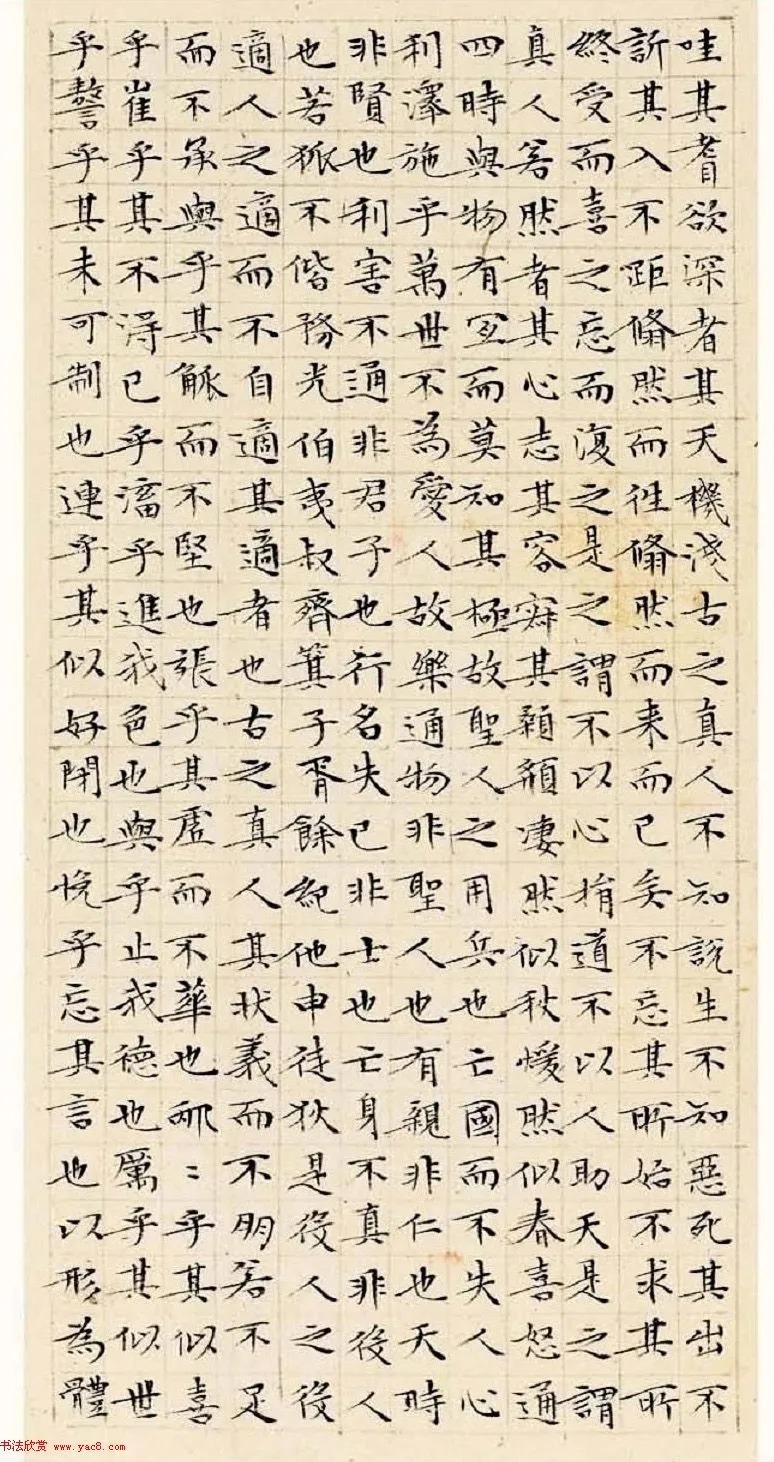 哇其耆欲深者其天機淺古之真人不知說生不知惡死其出不
訢其入不距翛然而往翛然而来而已矣不忘其所始不求其所
終受而喜之忘而復之是之謂不以心捐道不以人助天是之謂
真人若然者其心志其容寂其顙頯凄然似秋煖然似春喜怒通
四時與物有宜而莫知其極故聖人之用兵也亡國而不失人心
利澤施乎萬世不為愛人故樂通物非聖人也有親非仁也天時
非賢也利害不通非君子也行名失己非士也亡身不真非役人
也若狐不偕務光伯夷叔齊箕子胥餘紀他申徒狄是役人之役
適人之適而不自適其適者也古之真人其狀義而不朋若不足
而不承與乎其觚而不堅也張乎其虛而不華也邴〻乎其似喜
乎崔乎其不得已乎滀乎進我色也與乎止我德也厲乎其似世
乎謷乎其未可制也連乎其似好閉也悗乎忘其言也以形為體
书法欣赏 www.yac8.com